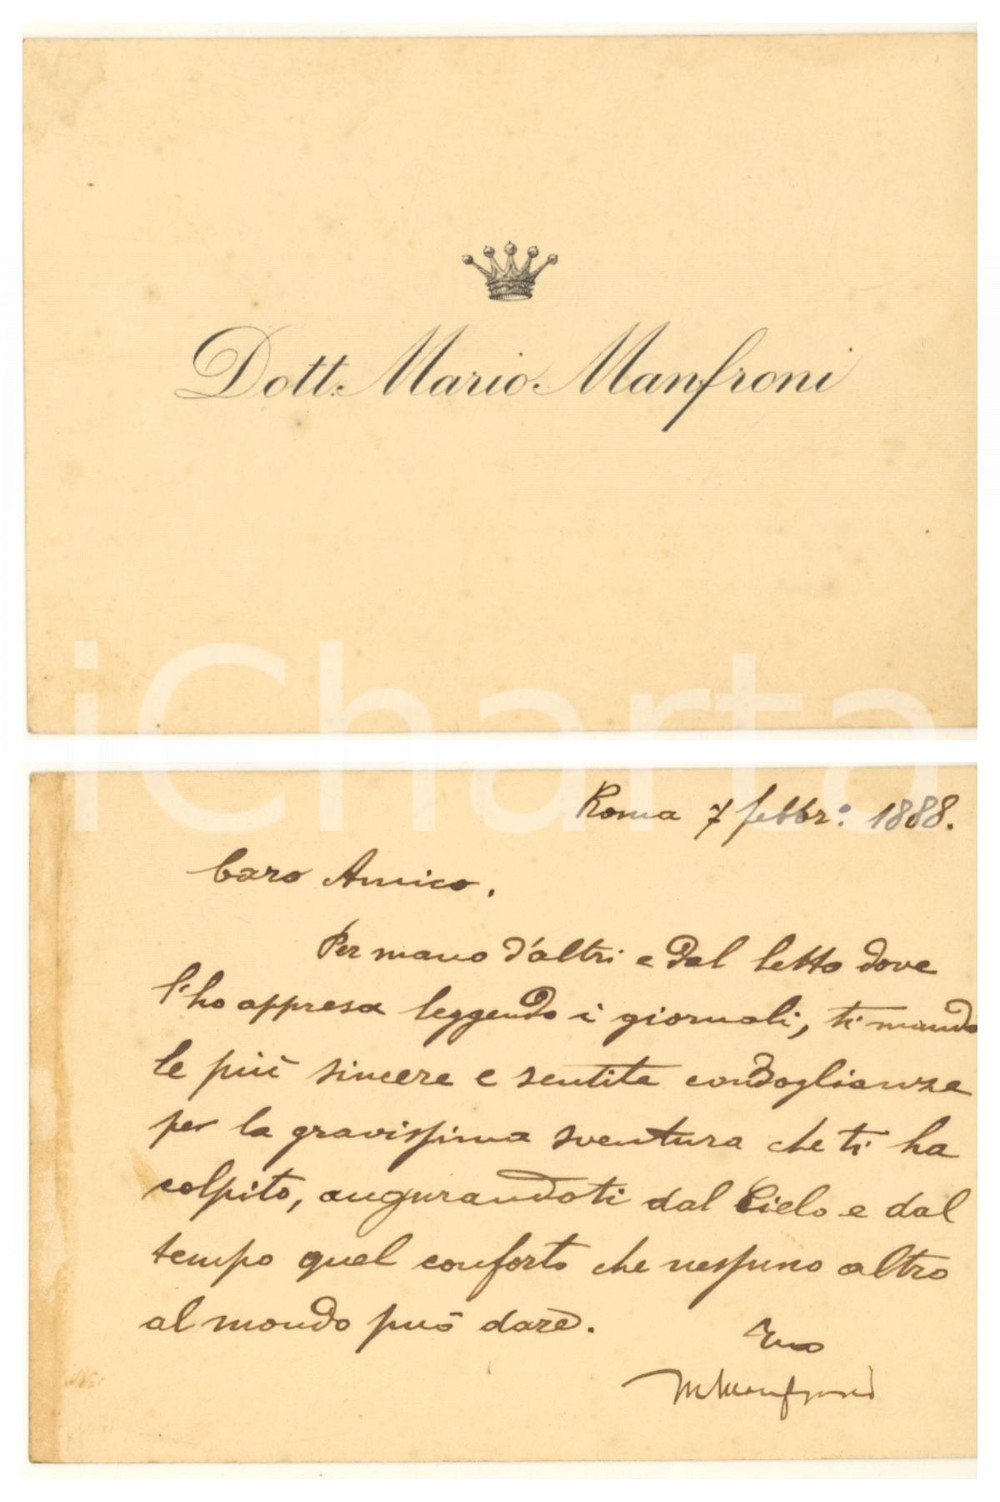 Dott. Mario Manfroni
iCharta
Roma 7 febbr.º 1888.
Caro Amico,
Per mano d'altri e dal letto dove
l'ho appresa leggendo i giornali, ti mando
le più sincere e sentite condoglianze
per la gravissima sventura che ti ha
colpito, augurandoti dal Cielo e dal
tempo quel conforto che nessuno altro
al mondo può dare.
Tuo
MManfroni